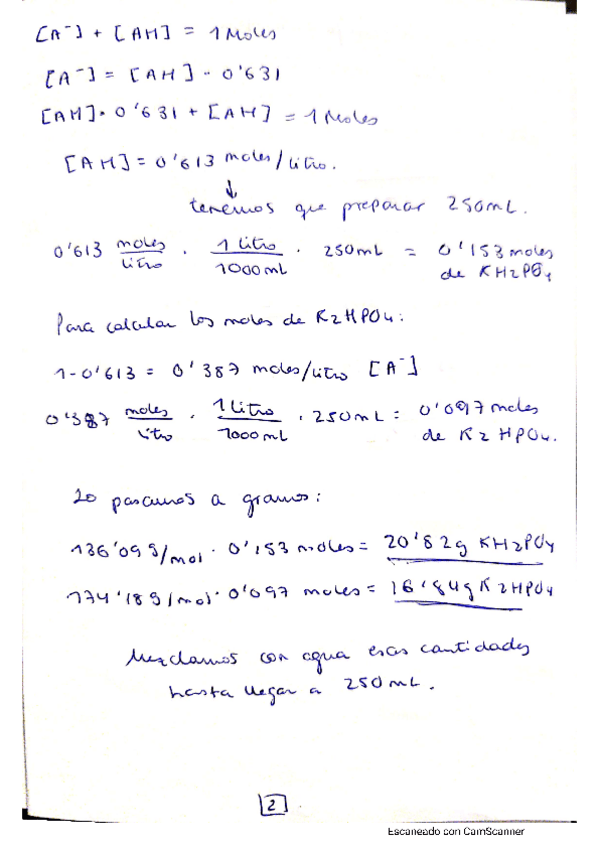 [A⁻] + [AH] = 1 Moles
[A⁻] = [AH] · 0'631
[AH] · 0'631 + [AH] = 1 Moles
[AH] = 0'613 moles/litro.
↓
tenemos que preparar 250mL.
0'613 moles/litro · 1 litro/1000mL · 250mL = 0'153 moles de KH2PO4
Para calcular los moles de K2HPO4:
1-0'613 = 0'387 moles/litro [A⁻]
0'387 moles/litro · 1 litro/1000mL · 250mL = 0'097 moles de K2HPO4.
Lo pasamos a gramos:
136'09 g/mol · 0'153 moles = 20'82g KH2PO4
174'18 g/mol · 0'097 moles = 16'84g K2HPO4
Mezclamos con agua esas cantidades
hasta llegar a 250mL.
2
Escaneado con CamScanner